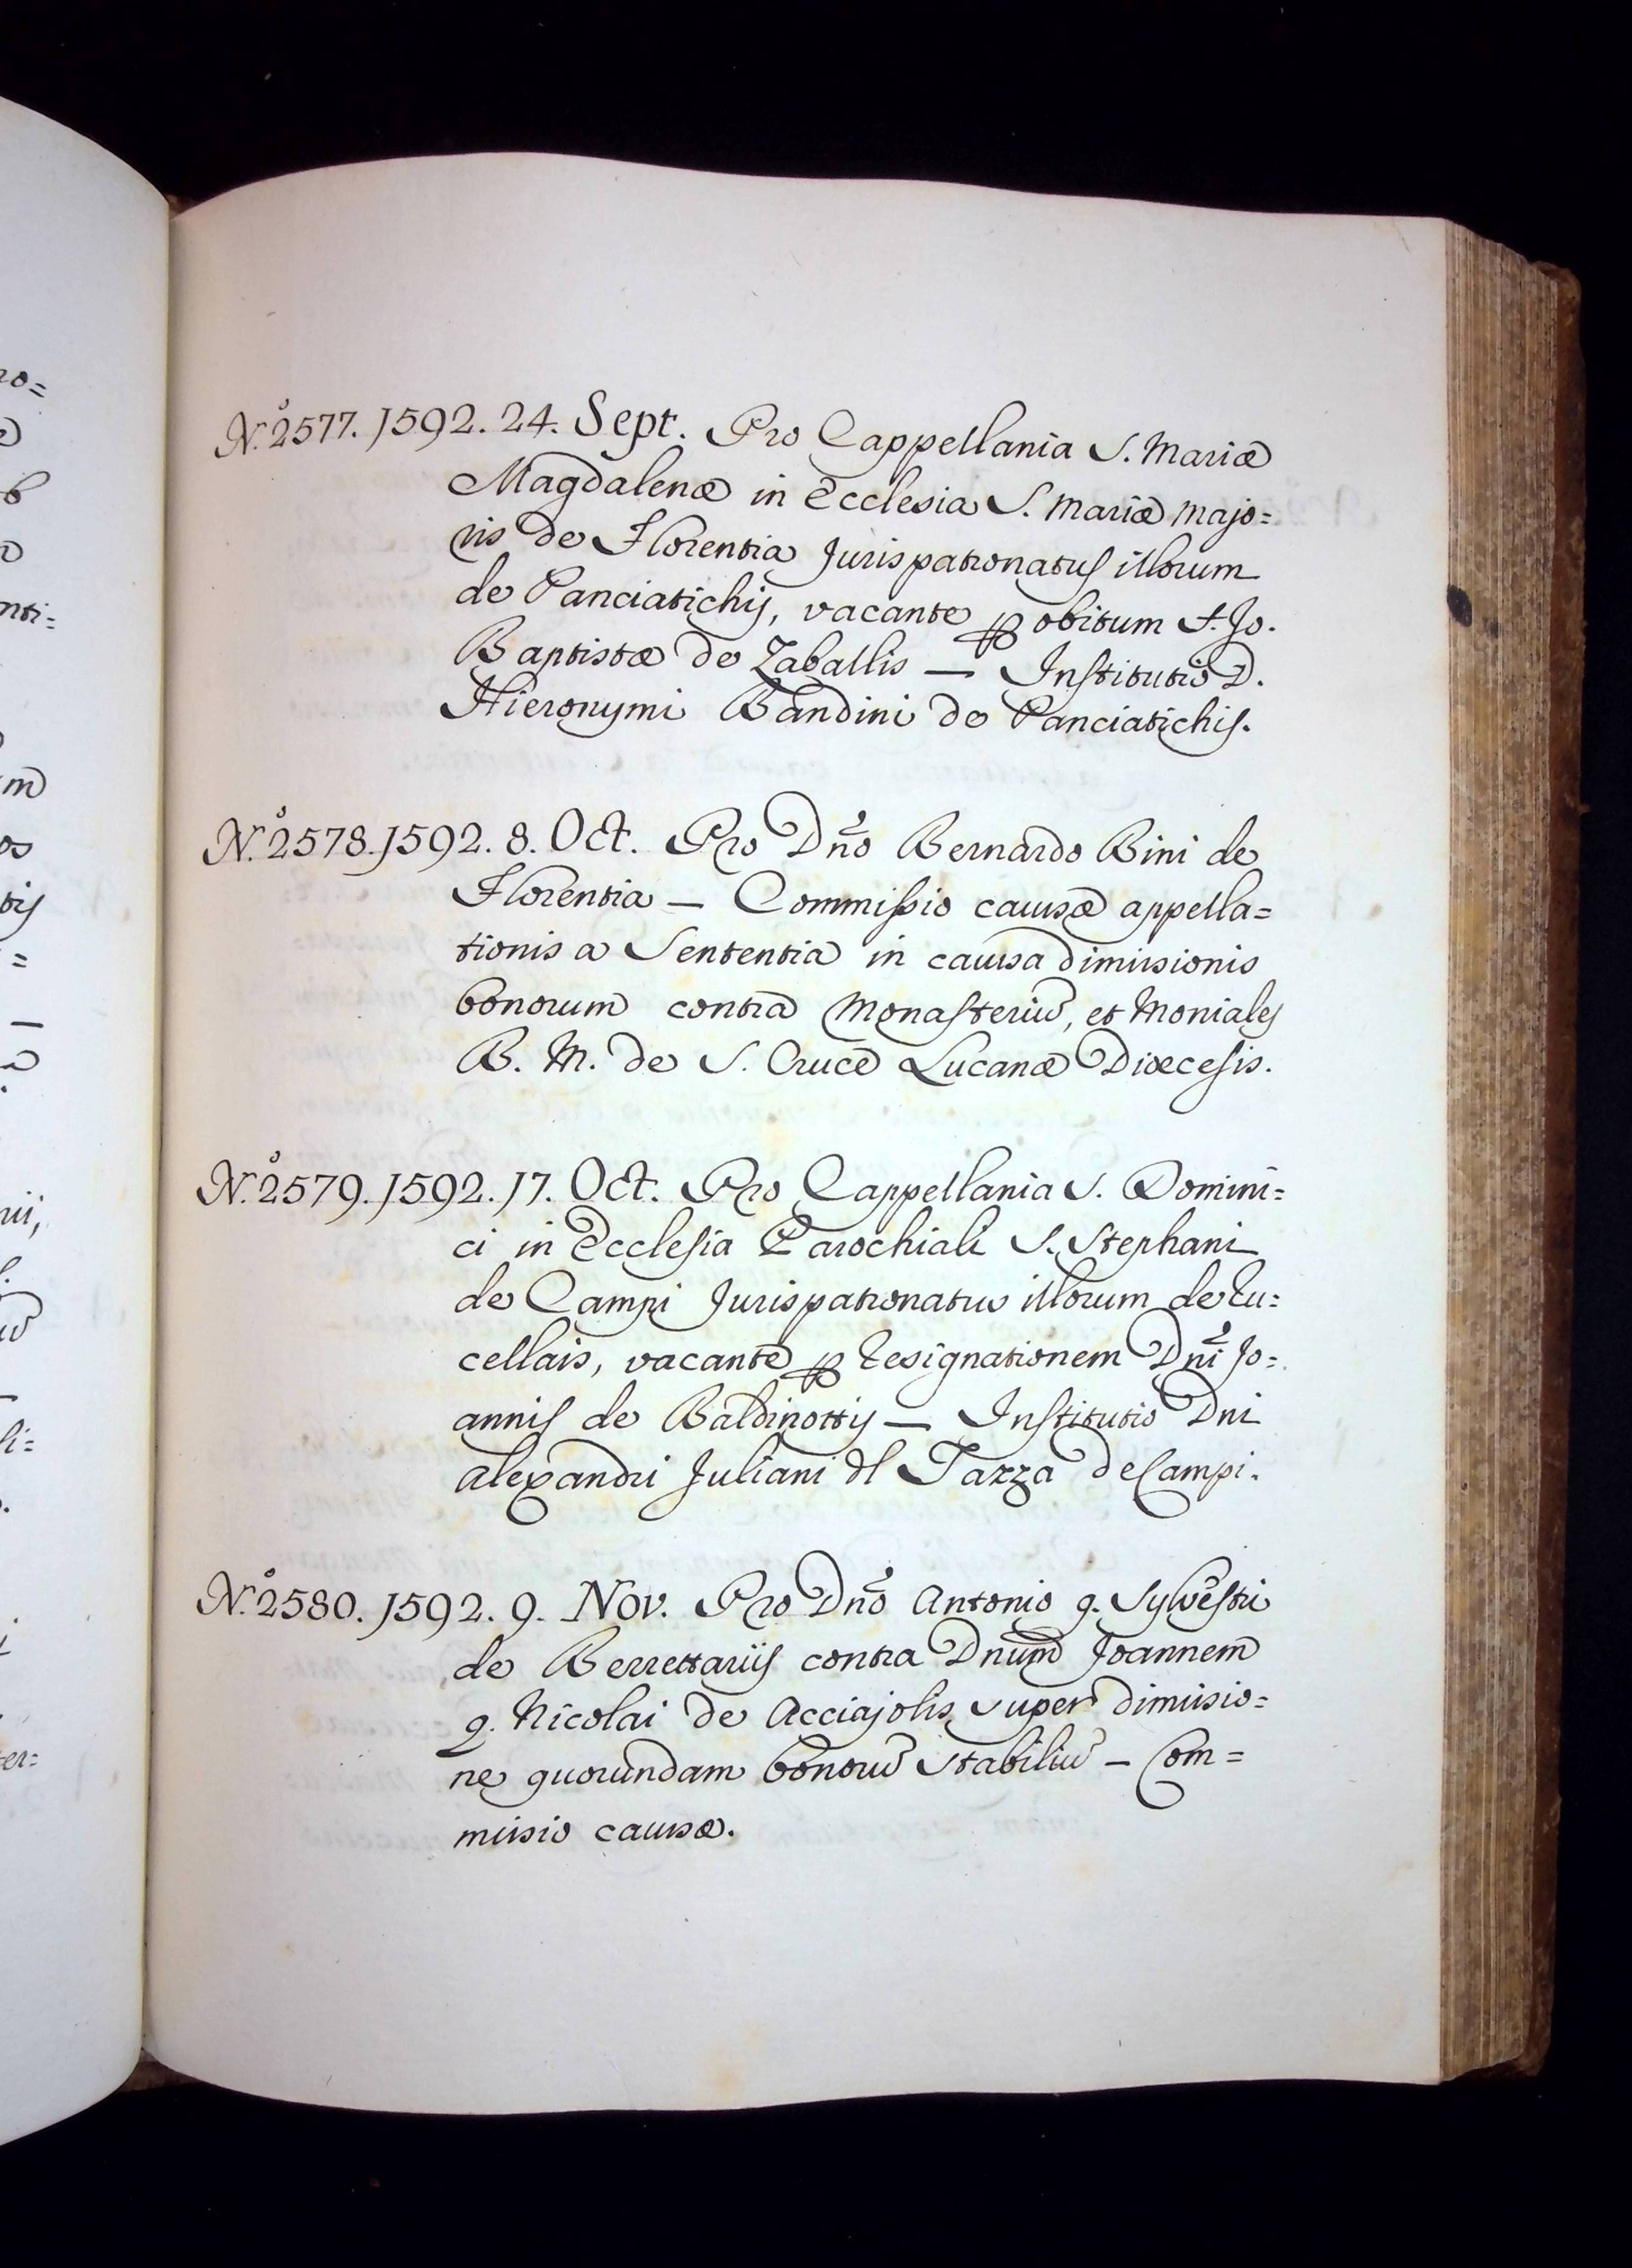 N.º 2577. 1592. 24. Sept. Pro Cappellania S. Mariæ
Magdalenæ in Ecclesia S. Mariæ Majo=
ris de Florentia Jurispatronatus illorum
de Panciatichijs, vacante p obitum f. Jo.
Baptistæ de Zaballis — Institutio D.
Hieronymi Bandini de Panciatichis.
N.º 2578. 1592. 8. Oct. Pro Dño Bernardo Bini de
Florentia — Commissio causæ appella=
tionis a Sententia in causa dimissionis
bonorum contra Monasteriũ, et Moniales
B. M. de S. Cruce Lucanæ Diœcesis.
N.º 2579. 1592. 17. Oct. Pro Cappellania S. Domini=
ci in Ecclesia Parochiali S. Stephani
de Campi Jurispatronatus illorum de Ru=
cellais, vacante p Resignationem Dñi Jo=
annis de Baldinottijs — Institutio Dni
Alexandri Juliani dl Tazza de Campi.
N.º 2580. 1592. 9. Nov. Pro Dño Antonio q. Sylvestri
de Berrettarijs contra Dnum Joannem
q. Nicolai de Acciajolis super dimissio=
ne quorundam bonorũ stabiliũ — Com=
missio causæ.
ro=
b
nti=
m
os
tis
=
—
nii,
li=
er=